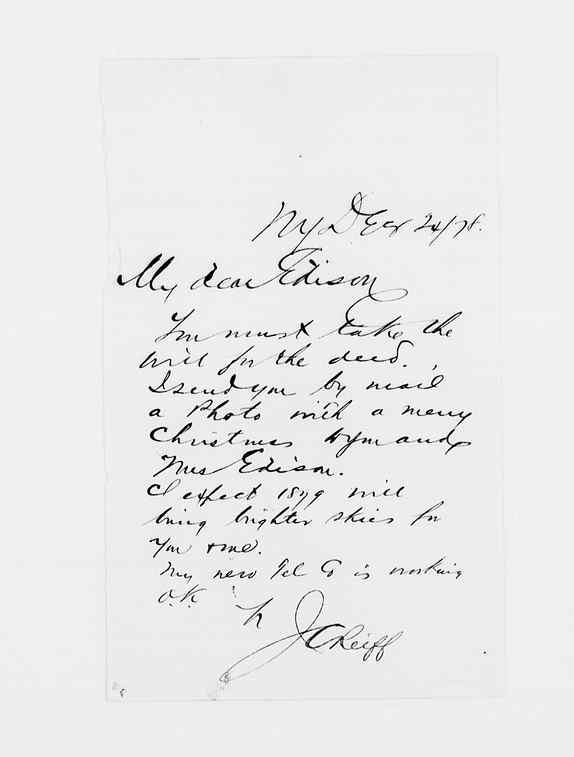 NY Dec 24/78.
My dear Edison
You must take the
will for the deed.
I send you by mail
a Photo with a merry
Christmas to you and
Mrs Edison.
I expect 1879 will
bring brighter skies for
you & me.
My new Tel Co is working
O.K.
J C Reiff